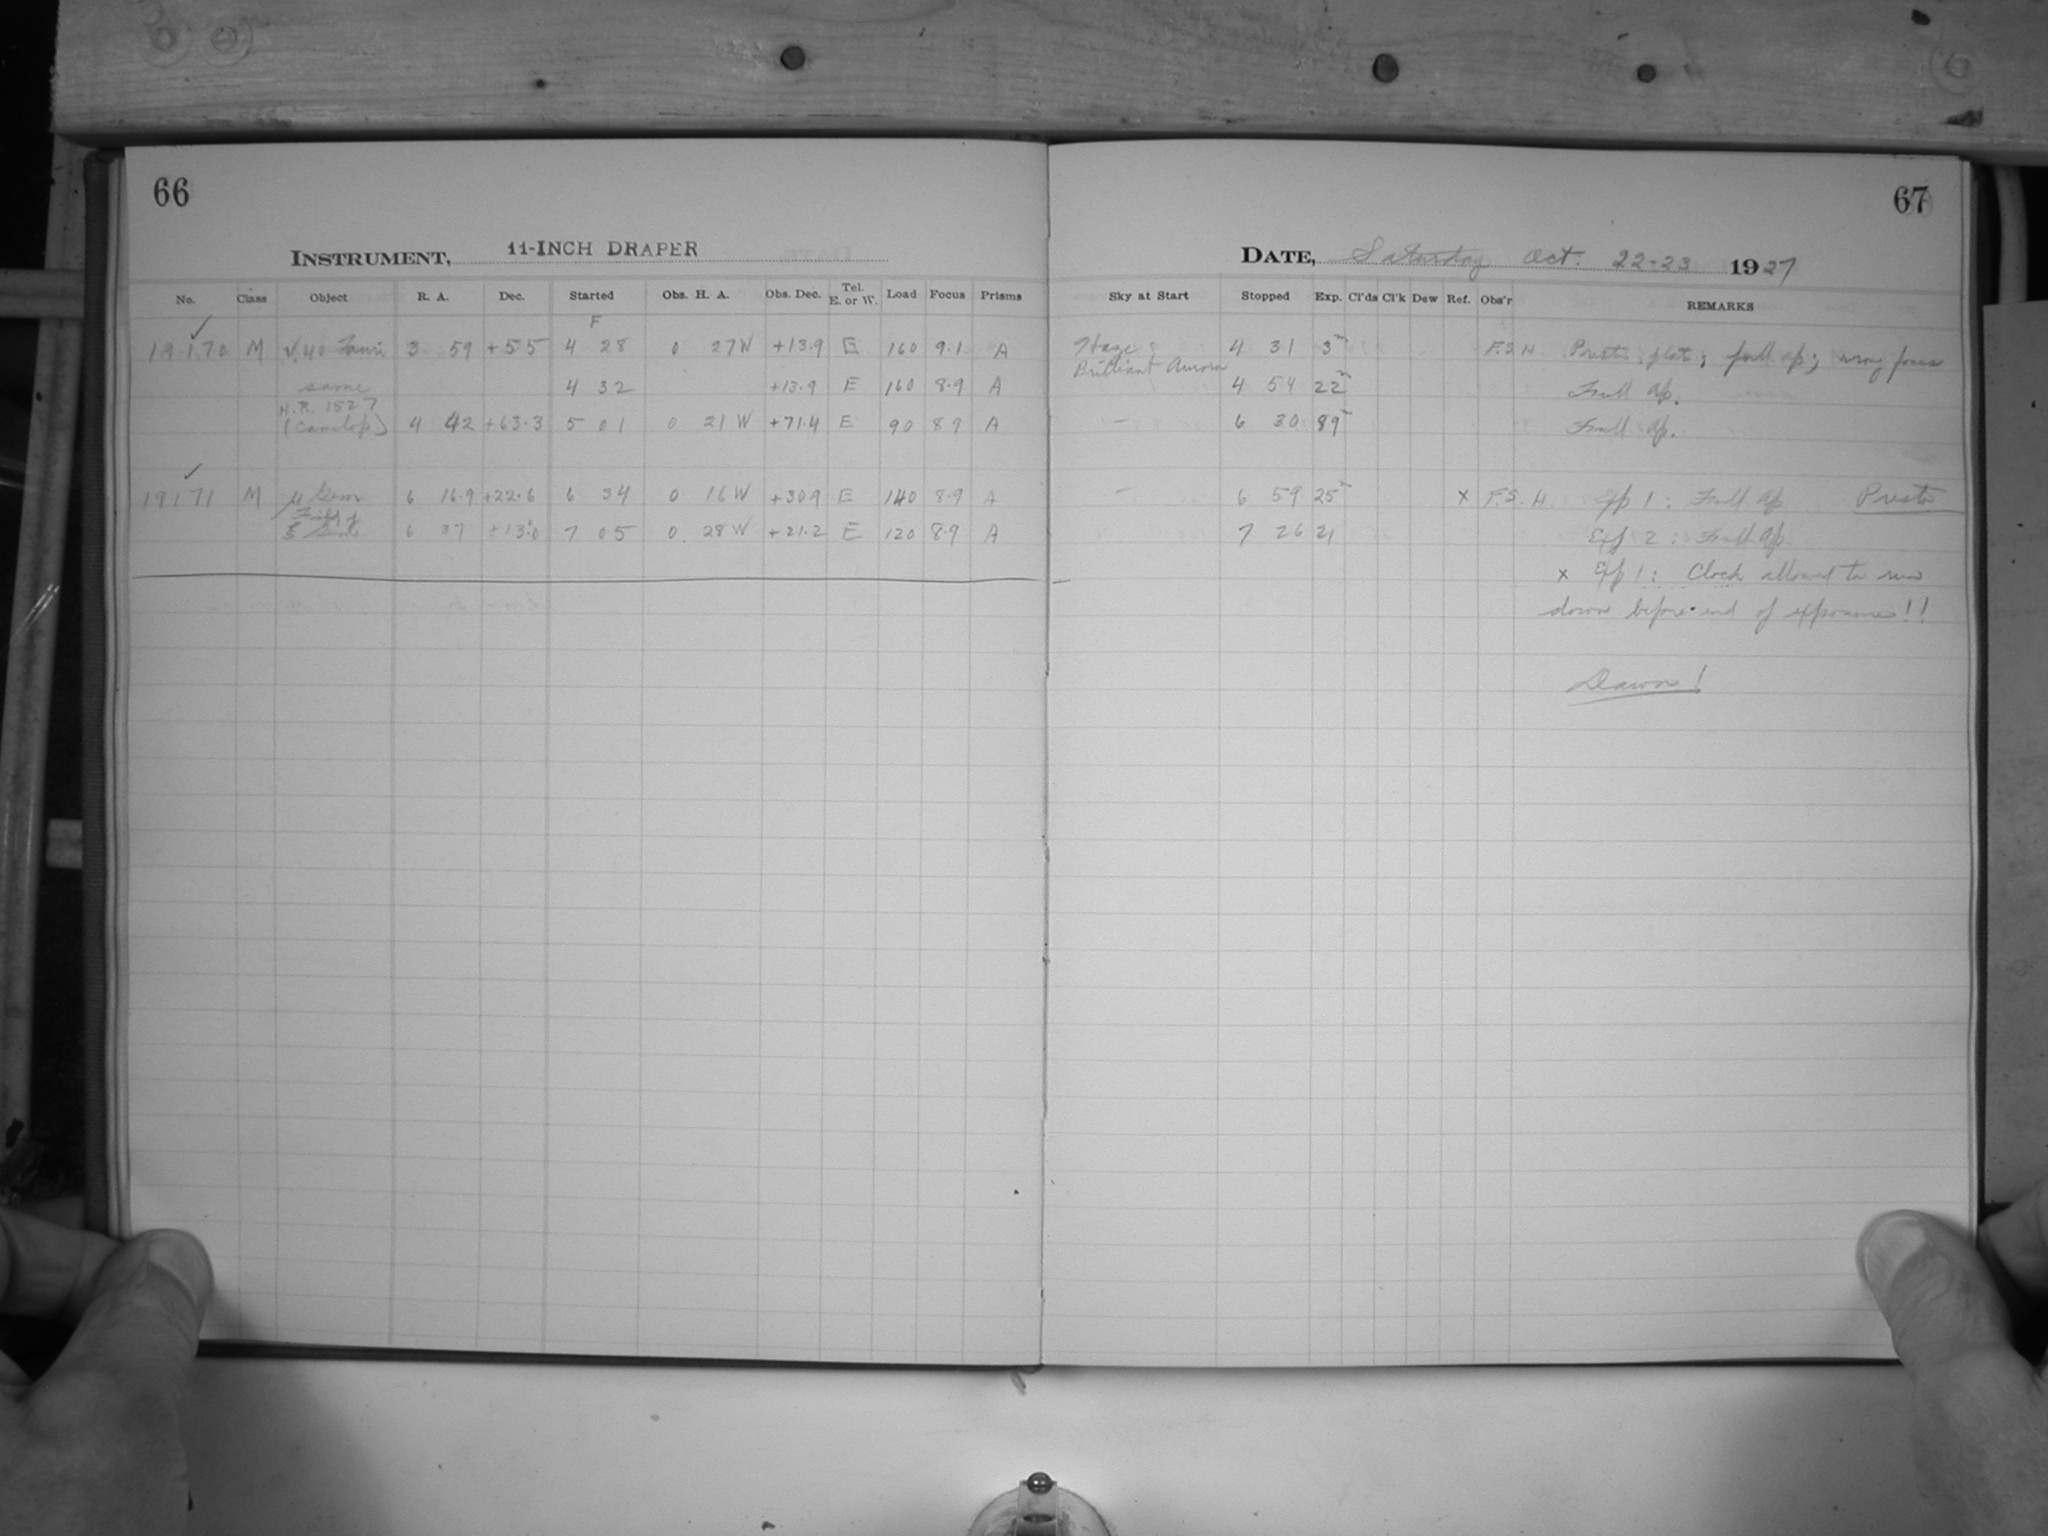 66
INSTRUMENT, 11-INCH DRAPER
No. Class Object R. A. Dec. Started Obs. H. A. Obs. Dec. Tel. E. or W. Load Focus Prisms
F
19170 M ν, 40 Tauri 3 59 +5.5 4 28 0 27W +13.9 E 160 9.1 A
same 4 32 +13.9 E 160 8.9 A
H.R. 1527
(Camelop) 4 42 +63.3 5 01 0 21 W +71.4 E 90 8.9 A
19171 M μ Gem 6 16.9 +22.6 6 34 0 16W +30.9 E 140 8.9 A
Field of
ξ Gem 6 37 +13.0 7 05 0 28W +21.2 E 120 8.9 A
67
DATE, Saturday Oct. 22-23 1927
Sky at Start Stopped Exp. Cl'ds Cl'k Dew Ref. Obs'r REMARKS
Haze 4 31 3m F.S.H Presto plate; full ap; wrong focus
Brilliant Aurora 4 54 22m Full Ap.
— 6 30 89m Full Ap.
— 6 59 25m x F.S.H. Exp 1: Full Ap Presto
7 26 21 Exp 2: Full Ap.
x Exp 1: Clock allowed to run
down before end of exposure!!
Dawn!